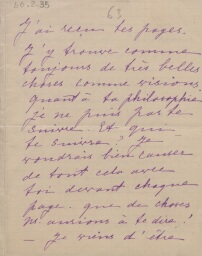 50.2.35
63
J'ai reçu tes pages.
J'y trouve comme
toujours de très belles
choses comme visions,
quant à ta philosophie
je ne puis pas te
suivre. Et qui
te suivra? Je
voudrais bien causer
de tout cela avec
toi devant chaque
page. que de choses
n'aurions à te dire!
— Je viens d'être